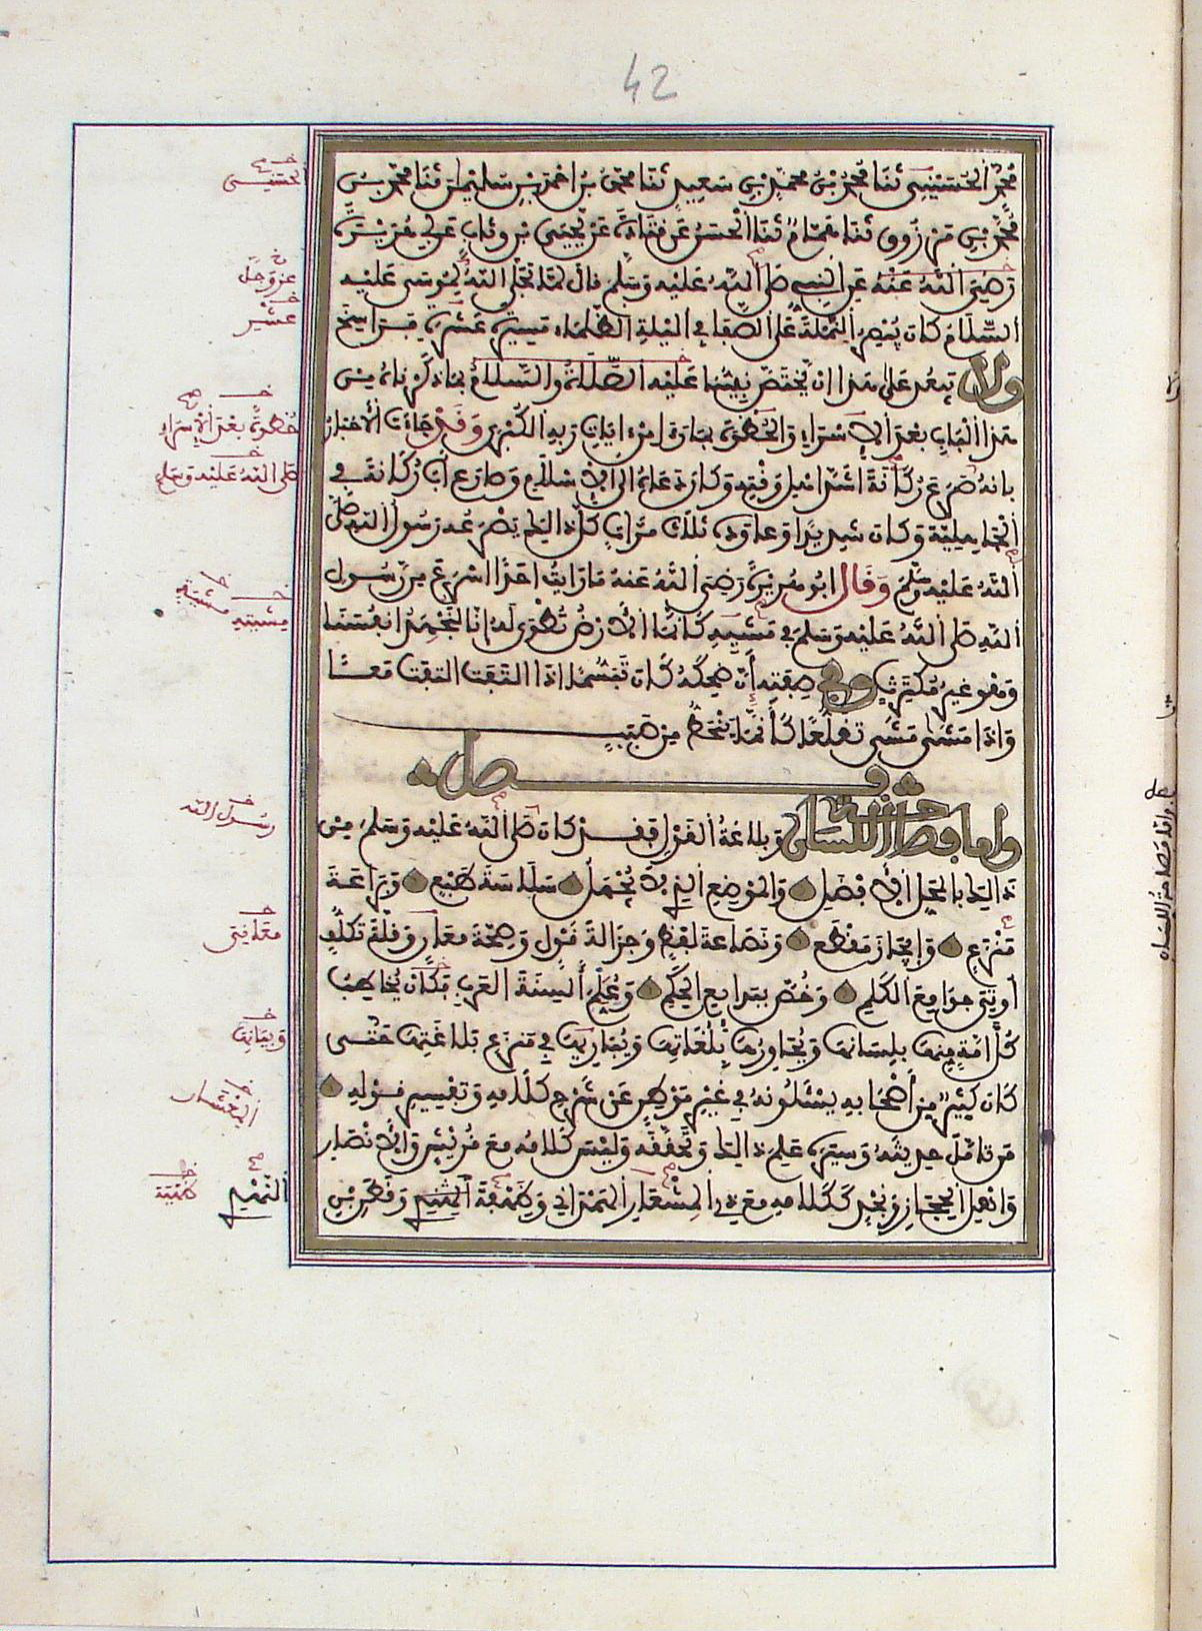 42
محمد الحسيني ثنا محمد بن محمد بن سعيد ثنا محمد بن احمد بن سليمان ثنا محمد بن
محمد بن مرزوق ثنا همام ثنا الحسن عن قتادة عن يحيى بن وثاب عن ابي هريرة
رضي الله عنه عن النبي صلى الله عليه وسلم قال لما تجلى الله لموسى عليه
السلام كان يبصر النملة على الصفا في الليلة الظلماء مسيرة عشرة فراسخ
ولا يبعد على هذا ان يختص نبينا عليه الصلاة والسلام بما ذكرناه من
هذا الباب بعد الاسراء والحظوة بما رءا من ءايات ربه الكبرى وقد جاءت الاخبار
بانه صرع ركانة اشد اهل وقته وكان دعاه الى الاسلام وصارع ابا ركانة في
الجاهلية وكان شديدا وعاوده ثلاث مرات كل ذلك يصرعه رسول الله صلى
الله عليه وسلم وقال ابو هريرة رضي الله عنه ما رايت احدا اسرع من رسول
الله صلى الله عليه وسلم في مشيه كانما الارض تطوى له انا لنجهد انفسنا
وهو غير مكترث وفي صفته أن ضحكه كان تبسما اذا التفت التفت معا
واذا مشى مشى تقلعا كأنما ينحط من صبب
فصل
واما فصاحة اللسان وبلاغة القول فقد كان صلى الله عليه وسلم من
ذلك بالمحل الافضل والموضع الذي لا يجهل سلاسة طبع وبراعة
منزع وإيجاز مقطع ونصاعة لفظ وجزالة قول وصحة معان وقلة تكلف
أوتي جوامع الكلم وخص ببدايع الحكم وعلم ألسنة العرب فكان يخاطب
كل أمة منها بلسانها ويحاورها بلغاتها ويباريها في منزع بلاغتها حتى
كان كثير من أصحابه يسئلونه في غير موطن عن شرح كلامه وتفسير قوله
من تامل حديثه وسيره علم ذلك وتحققه وليس كلامه مع قريش والانصار
واهل الحجاز ونجد ككلامه مع ذي المشعار الهمداني وطهفة النهدي وقطن بن
الحسني
عز وجل
عشر
حظوة بعد الاسراء
صلى الله عليه وسلم
مشيته مشيته
رسول الله
معاني
وبيانها
النهدي طهفة